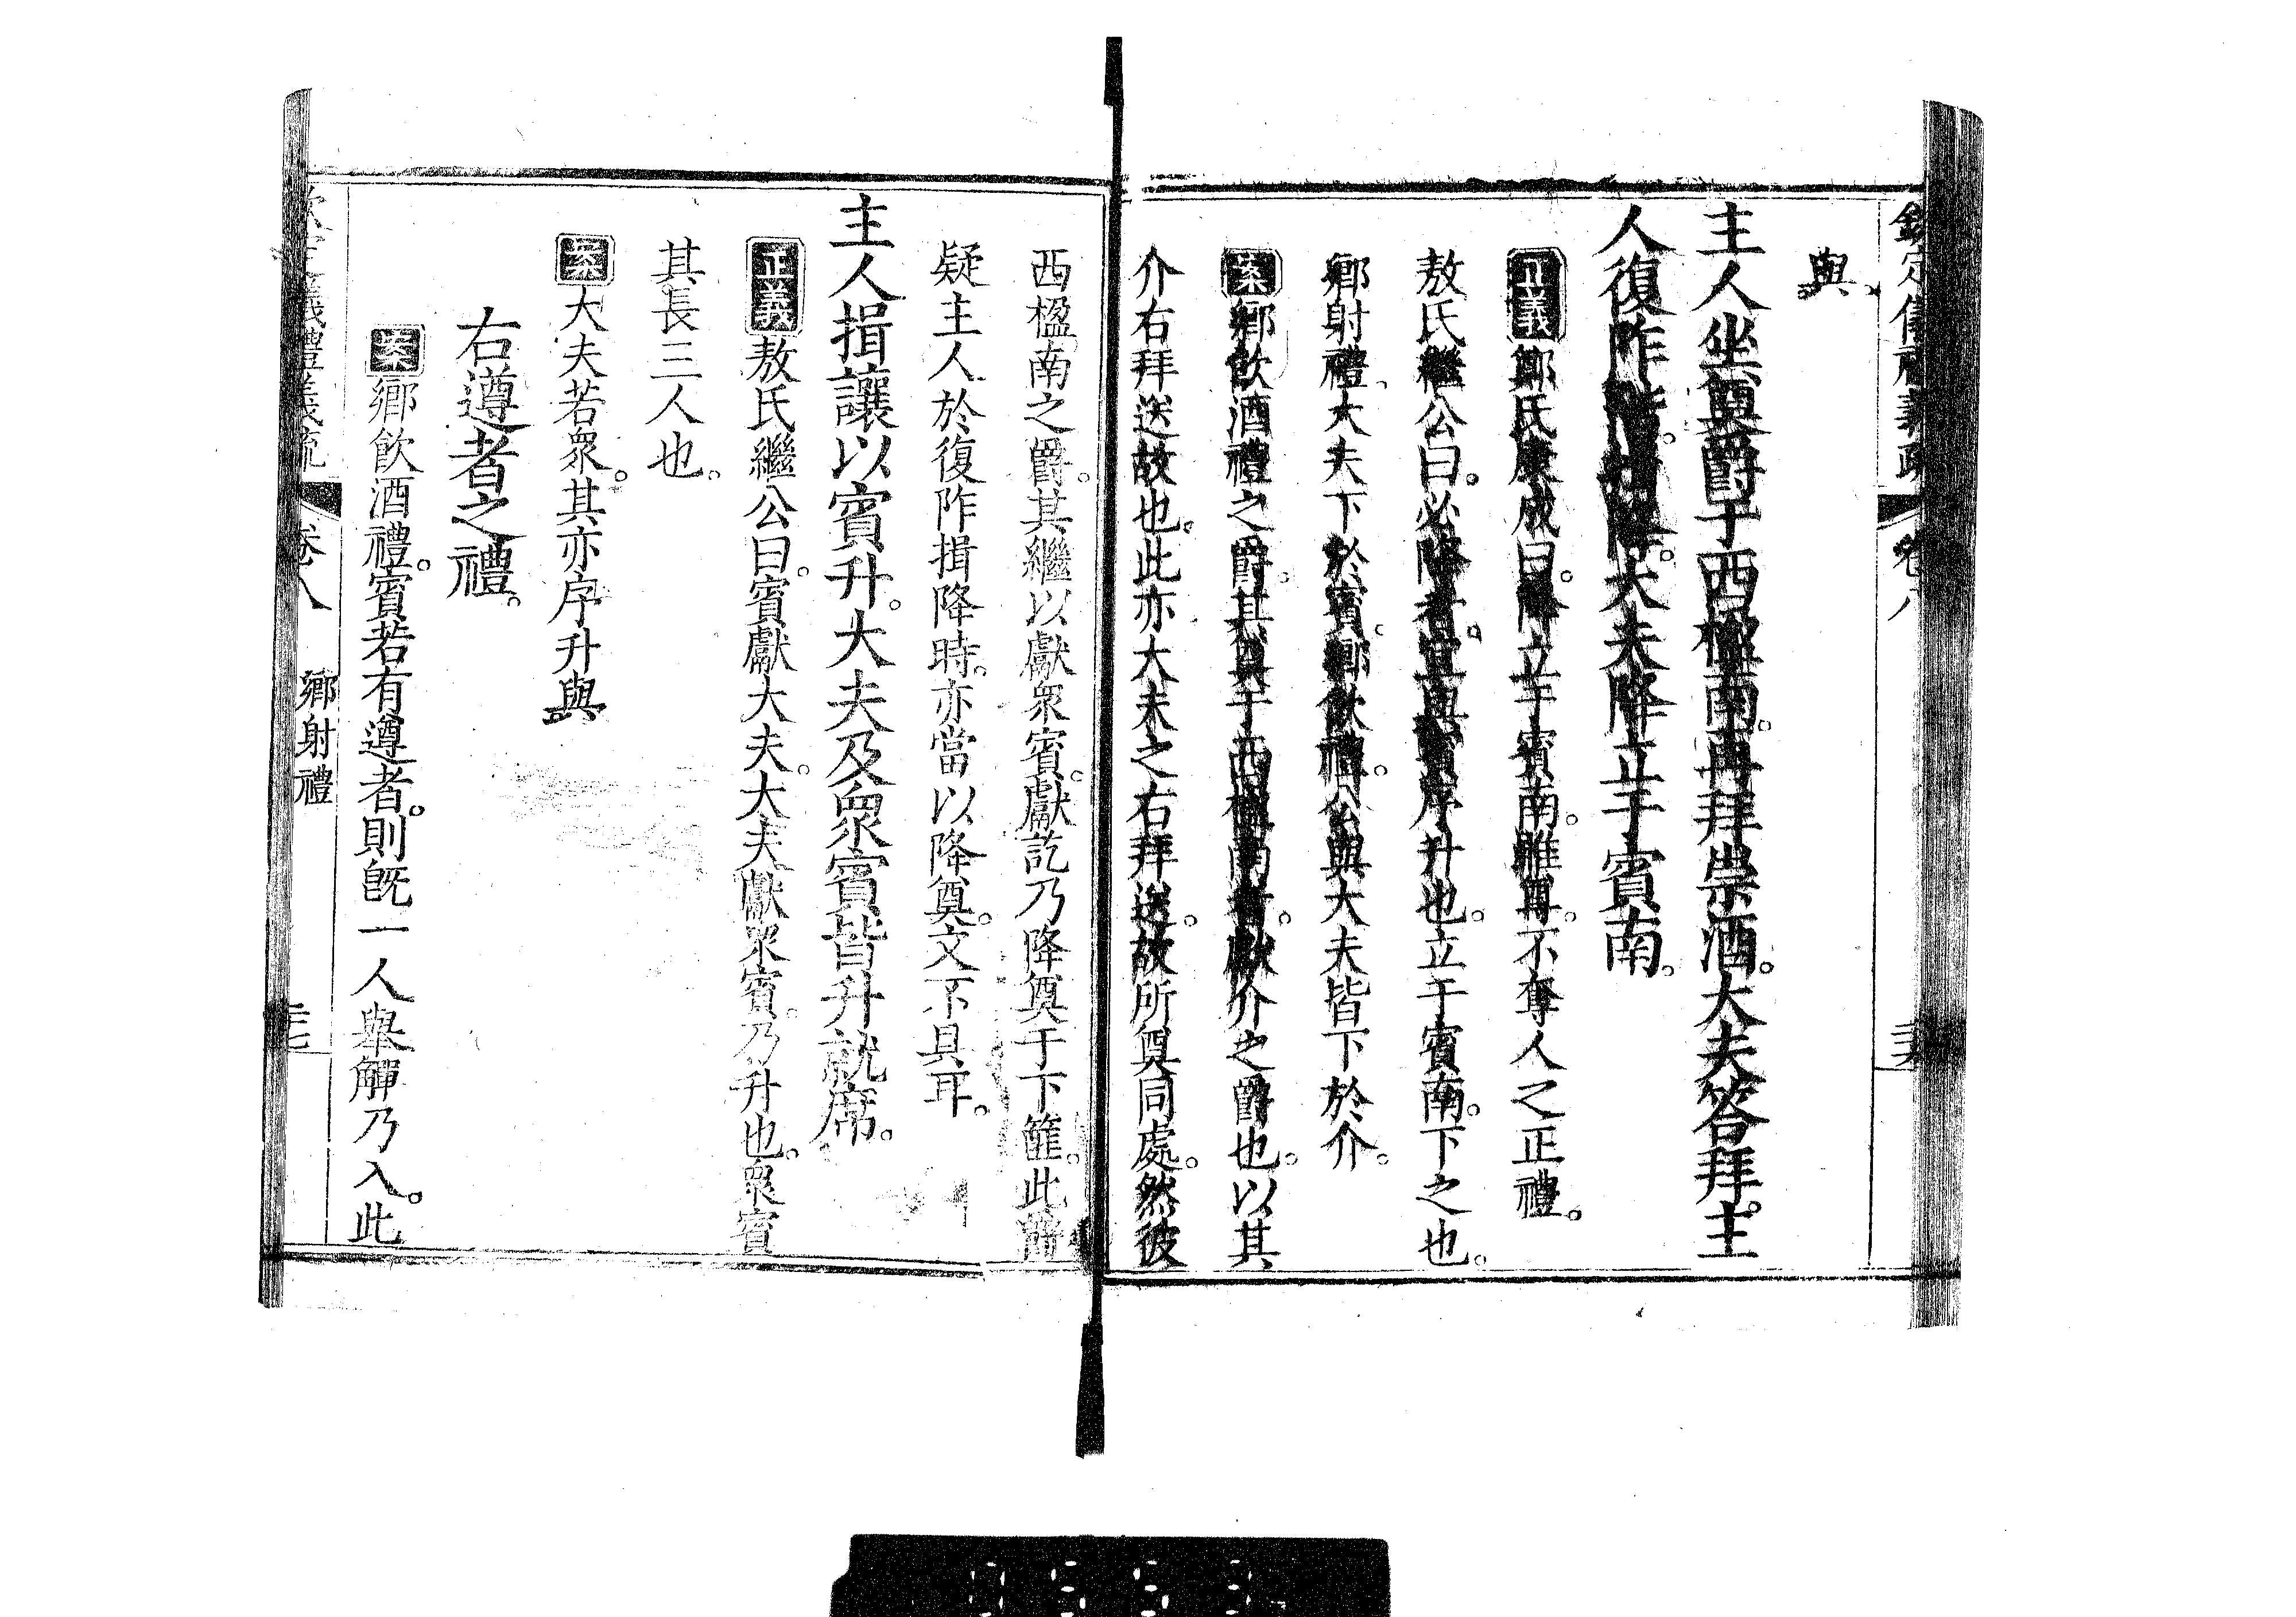 欽定儀禮義疏 卷八
與
主人坐奠爵于西楹南再拜崇酒大夫答拜主
人復阼階揖降大夫降立于賓南
正義鄭氏康成曰降立于賓南雖尊不奪人之正禮
敖氏繼公曰必降者宜與賓序升也立于賓南下之也
鄉射禮大夫下於賓鄉飲禮公與大夫皆下於介
案鄉飲酒禮之爵其奠于西楹南者獻介之爵也以其
介右拜送故也此亦大夫之右拜送故所奠同處然彼
西楹南之爵其繼以獻衆賓獻訖乃降奠于下篚此爵
疑主人於復阼揖降時亦當以降奠文不具耳
主人揖讓以賓升大夫及衆賓皆升就席
正義敖氏繼公曰賓獻大夫大夫獻衆賓乃升也衆賓
其長三人也
案大夫若衆其亦序升與
右遵者之禮
案鄉飲酒禮賓若有遵者則旣一人舉觶乃入此
欽定儀禮義疏 卷八 鄉射禮